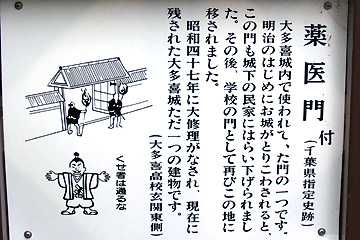 薬医門
付(千葉県指定史跡)
大多喜城内で使われて、た門の一つです。
明治のはじめにお城がとりこわされると、
この門も城下の民家にはらい下げられまし
た。その後、学校の門として再びこの地に
移されました。
昭和四十七年に大修理がなされ、現在に
残された大多喜城ただ一つの建物です。
(大多喜高校玄関東側)
くせ者は通るな